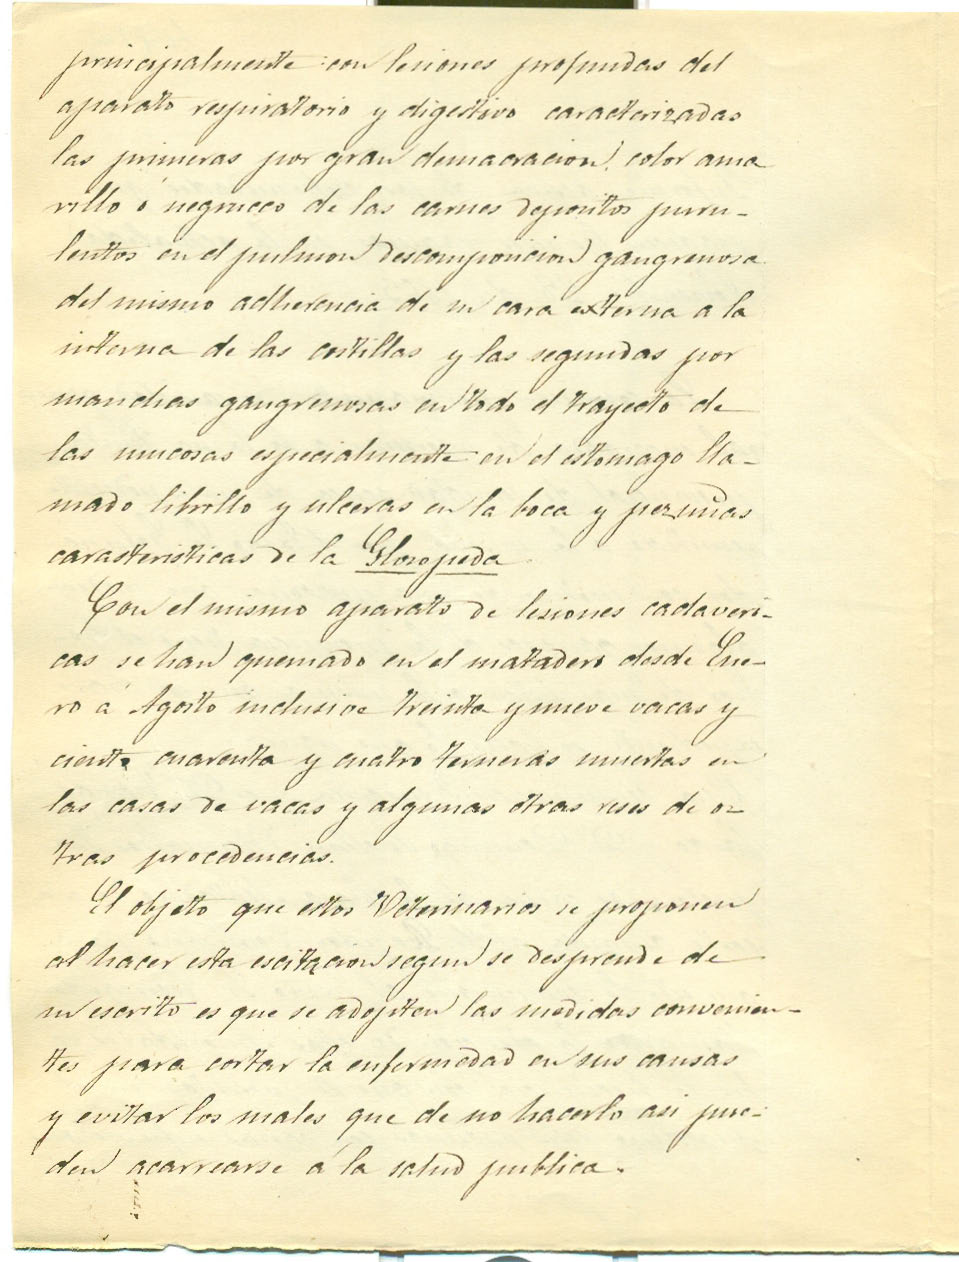 principalmente con lesiones profundas del
aparato respiratorio y digestivo caracterizadas
las primeras por gran demacracion, color ama
rillo ó negruzco de las carnes depositos puru-
lentos en el pulmon descomposicion gangrenosa
del mismo adherencia de su cara externa a la
interna de las costillas y las segundas por
manchas gangrenosas en todo el trayecto de
las mucosas especialmente en el estomago lla-
mado librillo y ulceras en la boca y pezuñas
caracteristicas de la Glosopeda
Con el mismo aparato de lesiones cadaveri-
cas se han quemado en el matadero desde Ene-
ro á Agosto inclusive treinta y nueve vacas y
ciento cuarenta y cuatro terneras muertas en
las casas de vacas y algunas otras reses de o-
tras procedencias.
El objeto que estos Veterinarios se proponen
al hacer esta escitacion segun se desprende de
su escrito es que se adopten las medidas convenien-
tes para cortar la enfermedad en sus causas
y evitar los males que de no hacerlo asi pue-
den acarrearse á la salud publica.